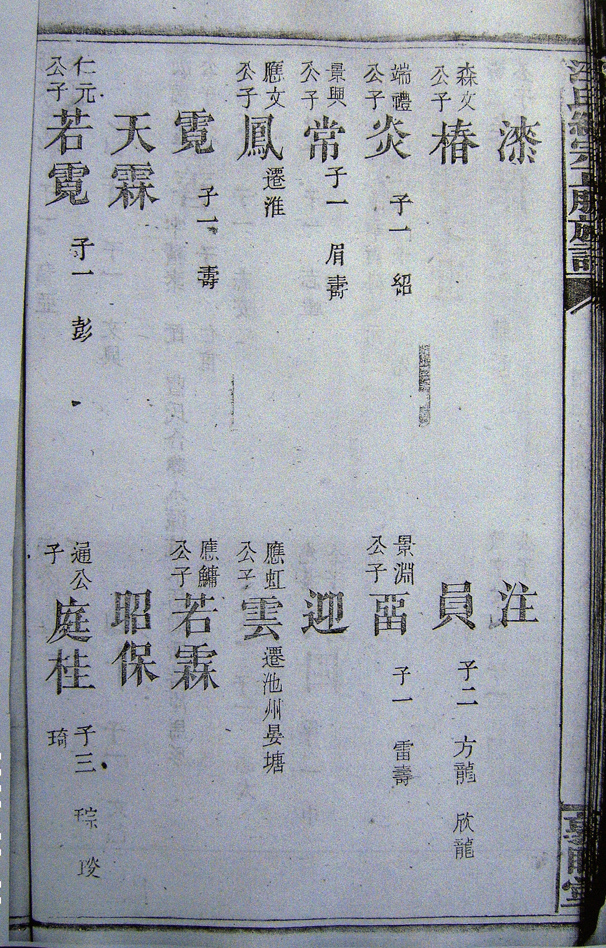 漆 注
森文公子 椿 員 子二 方龍 欣龍
端禮公子 炎 子一 紹 景淵公子 子一 雷壽
景興公子 常 子一 眉壽 迎
應文公子 鳳 遷淮 應虹公子 雲 遷池州晏塘
霓 子一 壽 應鱅公子 若霖
天霖 昭保
仁元公子 若霓 子一 彭 通公子 庭桂 子三 琮 琦